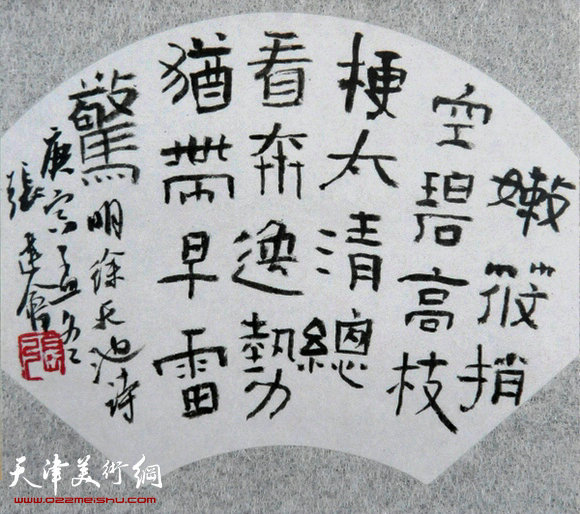 嫩筱捎
空碧高枝
梗太清總
看奔逸勢
猶帶早雷
驚明徐天池詩
庚寅孟冬
張建會
天津美術網
www.022meishu.com